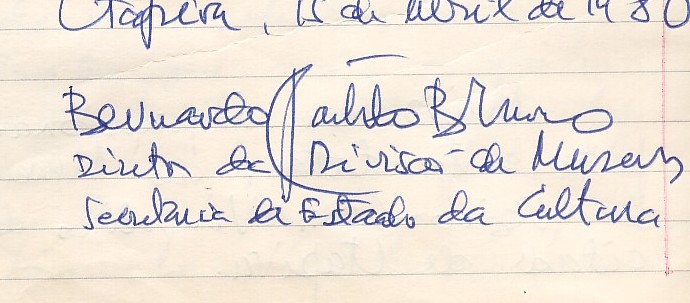 Itapeva, 15 de Abril de 1980
Bernardo Castelo Branco
Diretor da Divisão de Museus
Secretaria de Estado da Cultura